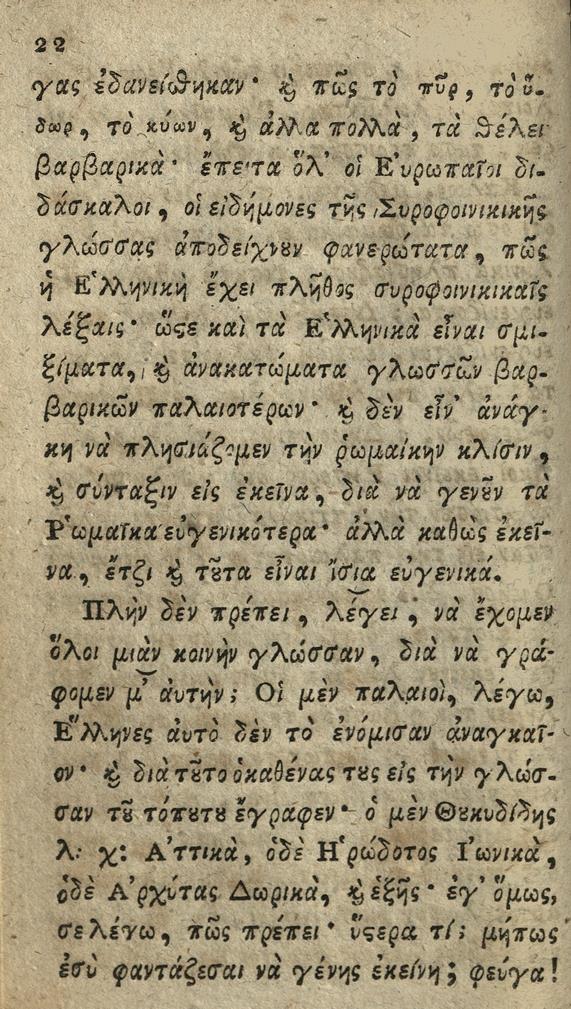 22
γας ἐδανείσθηκαν· ϗ̀ πῶς τὸ πῦρ, τὸ ὕ-
δωρ, τὸ κύων, ϗ̀ ἄλλα πολλὰ, τὰ θέλει
βαρβαρικὰ· ἔπειτα ὅλ' οἱ Ἐυρωπαῖοι δι-
δάσκαλοι, οἱ εἰδήμονες τῆς Συροφοινικικῆς
γλώσσας ἀποδείχνȣν φανερώτατα, πῶς
ἡ Ἑλληνικὴ ἔχει πλῆθος συροφοινικικαῖς
λέξαις· ὥϛε καὶ τὰ Ἑλληνικὰ εἶναι σμι-
ξίματα, ϗ̀ ἀνακατώματα γλωσσῶν βαρ-
βαρικῶν παλαιοτέρων· ϗ̀ δὲν εἶν' ἀνάγ-
κη νὰ πλησιάζομεν τὴν ῥωμαίκην κλίσιν,
ϗ̀ σύνταξιν εἰς ἐκεῖνα, διὰ νὰ γενȣ͂ν τὰ
Ῥωμαῖκα εὐγενικότερα· ἀλλὰ καθὼς ἐκεῖ-
να, ἔτζι ϗ̀ τȣ͂τα εἶναι ἴσια εὐγενικά.
Πλὴν δὲν πρέπει, λέγει, νὰ ἔχομεν
ὅλοι μιὰν κοινὴν γλώσσαν, διὰ νὰ γρά-
φομεν μ' ἀυτήν; Οἱ μὲν παλαιοὶ, λέγω,
Ἕλληνες ἀυτὸ δὲν τὸ ἐνόμισαν ἀναγκαῖ-
ον· ϗ̀ διὰ τȣ͂το ὁκαθένας τȣς εἰς τὴν γλώσ-
σαν τȣ͂ τόπȣτȣ ἔγραφεν· ὁ μὲν Θȣκυδίδης
λ: χ: Ἀττικὰ, ὁδὲ Ἡρόδοτος Ἰωνικὰ,
ὁδὲ Ἀρχύτας Δωρικὰ, ϗ̀ ἑξῆς· ἐγ' ὅμως,
σε λέγω, πῶς πρέπει· ὕϛερα τί; μήπως
ἐσὺ φαντάζεσαι νὰ γένης ἐκείνη; φεύγα!